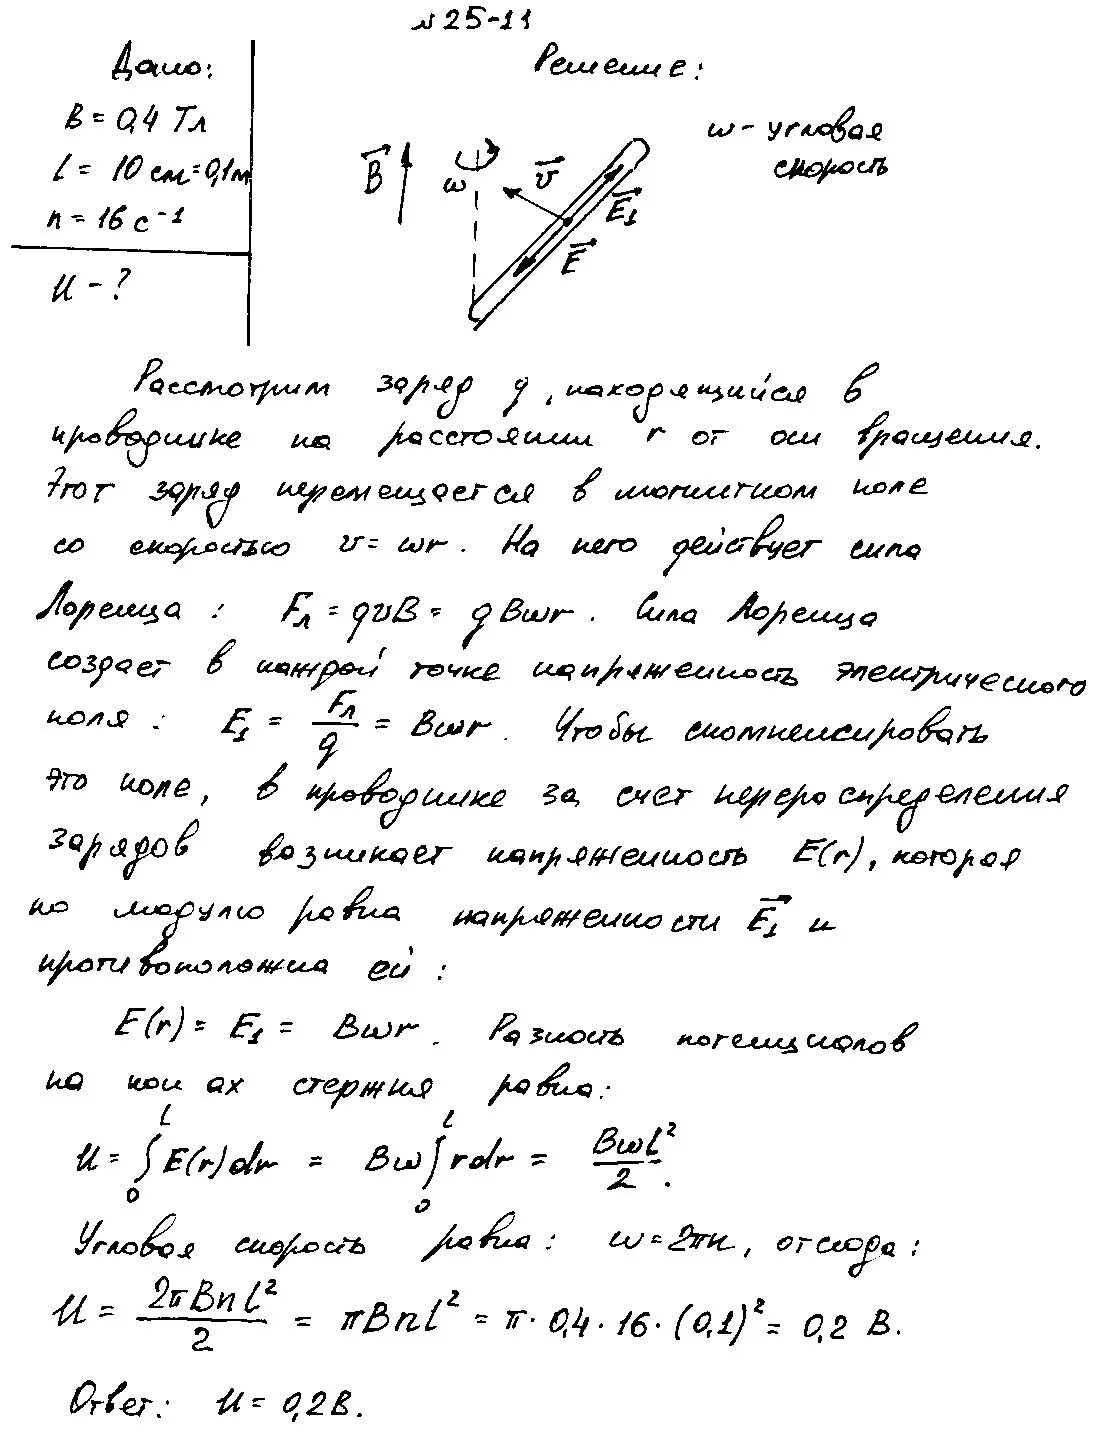 № 25-11
Дано:
B = 0,4 Тл
l = 10 см = 0,1м
n = 16 с⁻¹
U - ?
Решение:
ω - угловая
скорость
B⃗
ω
v⃗
E⃗₁
E⃗
Рассмотрим заряд q, находящийся в
проводнике на расстоянии r от оси вращения.
Этот заряд перемещается в магнитном поле
со скоростью v = ωr. На него действует сила
Лоренца: Fл = qvB = qBωr. Сила Лоренца
создает в каждой точке напряженность электрического
поля: E₁ = Fл/q = Bωr. Чтобы скомпенсировать
это поле, в проводнике за счет перераспределения
зарядов возникает напряженность E(r), которая
по модулю равна напряженности E⃗₁ и
противоположна ей:
E(r) = E₁ = Bωr. Разность потенциалов
на кон ах стержня равна:
U = ∫₀ˡ E(r)dr = Bω∫₀ˡ rdr = Bωl²/2.
Угловая скорость равна: ω = 2πn, отсюда:
U = 2πBnl²/2 = πBnl² = π · 0,4 · 16 · (0,1)² = 0,2 В.
Ответ: U = 0,2В.